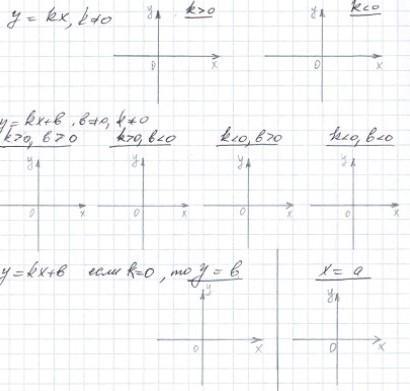 y = kx, k≠0 k>0 k<0
y y
0 x 0 x
y = kx+b, b≠0, k≠0
k>0, b>0 k>0, b<0 k<0, b>0 k<0, b<0
y y y y
0 x 0 x 0 x 0 x
y = kx+b если k=0, то y = b x = a
y y
0 x 0 x